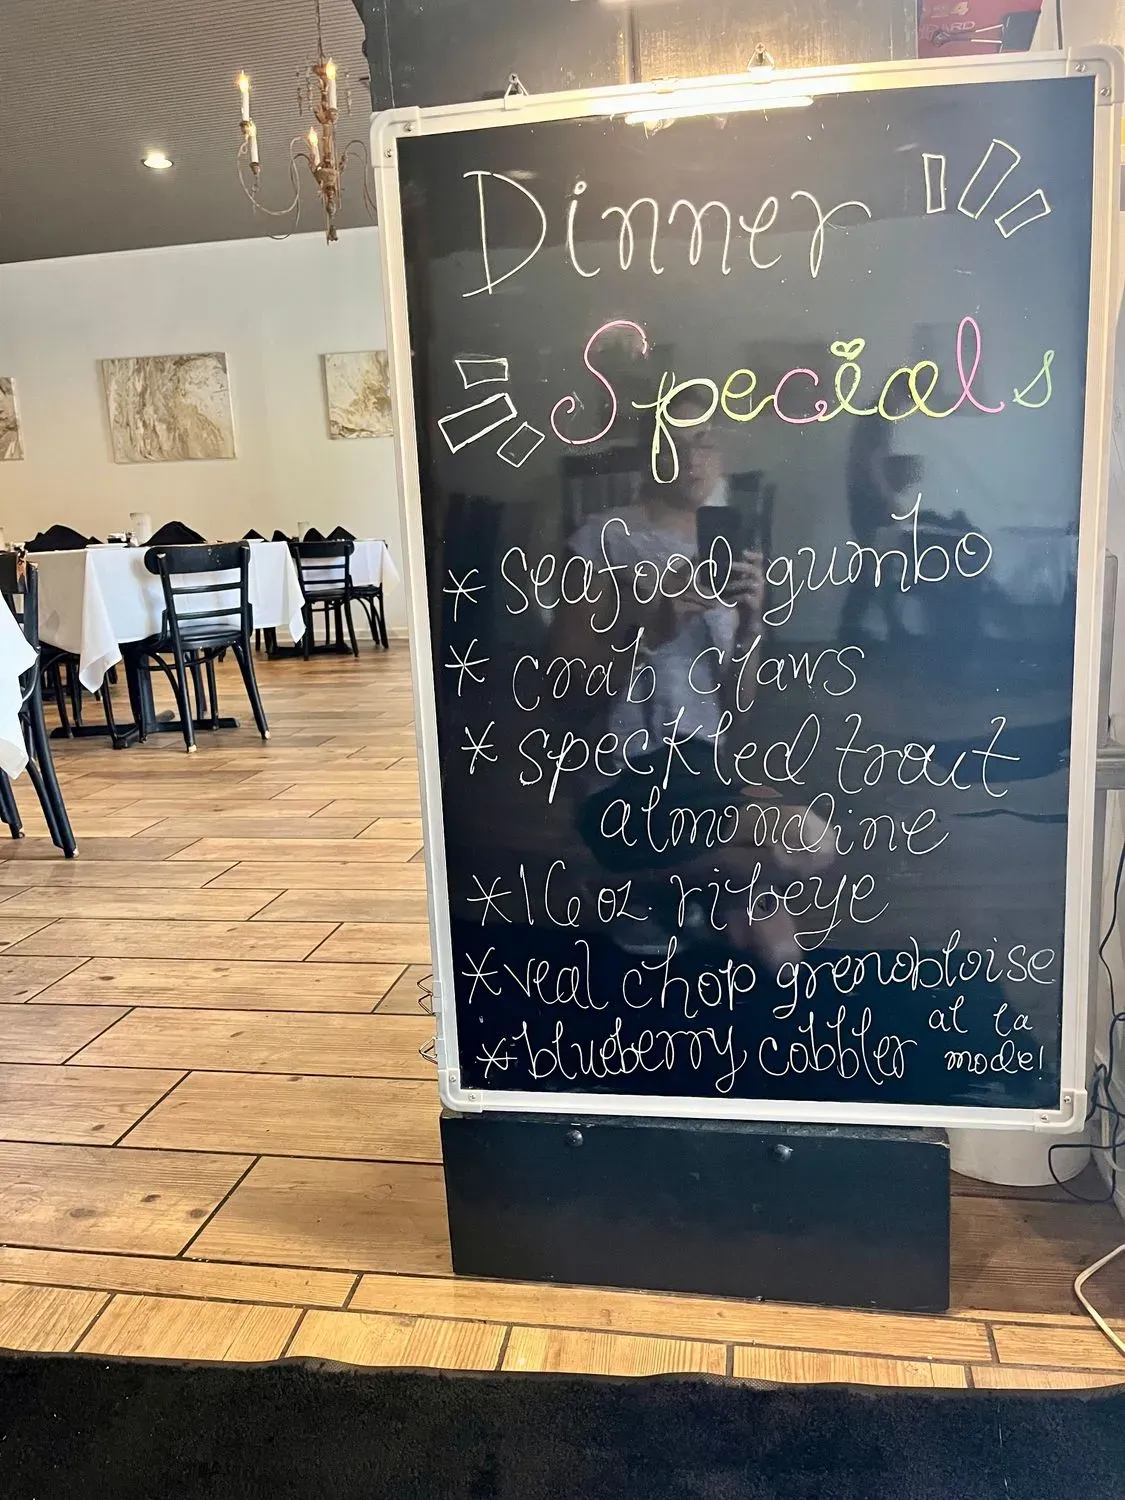 Dinner
Specials
* seafood gumbo
* crab claws
* speckled trout
almondine
* 16 oz. ribeye
* veal chop grenobloise
* blueberry cobbler al la
mode!